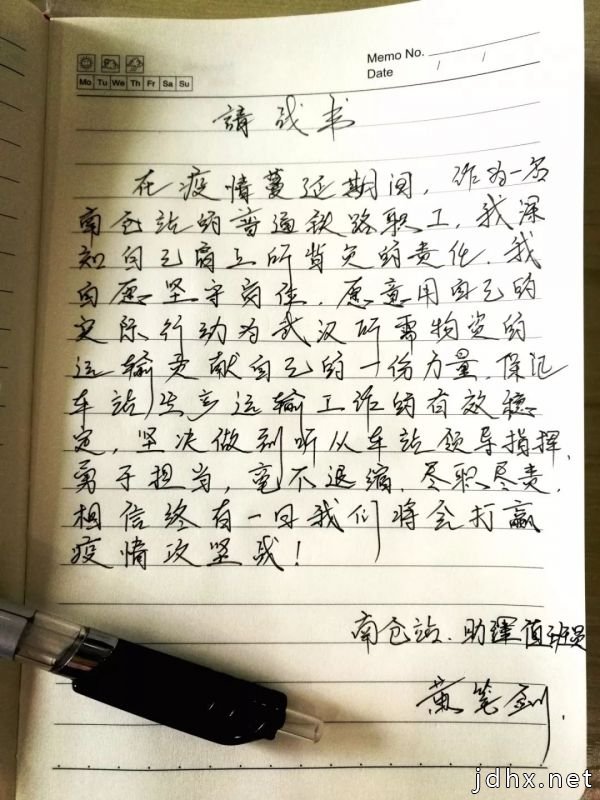 Memo No.
Date / /
Mo Tu We Th Fr Sa Su
請战书
在疫情蔓延期间，作为一名
南仓站的普通铁路职工，我深
知自己肩上所背负的责任，我
自愿坚守岗位，愿意用自己的
实际行动为武汉所需物资的
运输贡献自己的一份力量，保证
车站生产运输工作的有效稳
定，坚决做到听从车站领导指挥，
勇于担当，毫不退缩，尽职尽责，
相信终有一日我们将会打赢
疫情攻坚战！
南仓站、助理值班员
黄笔剑
jdhx.net